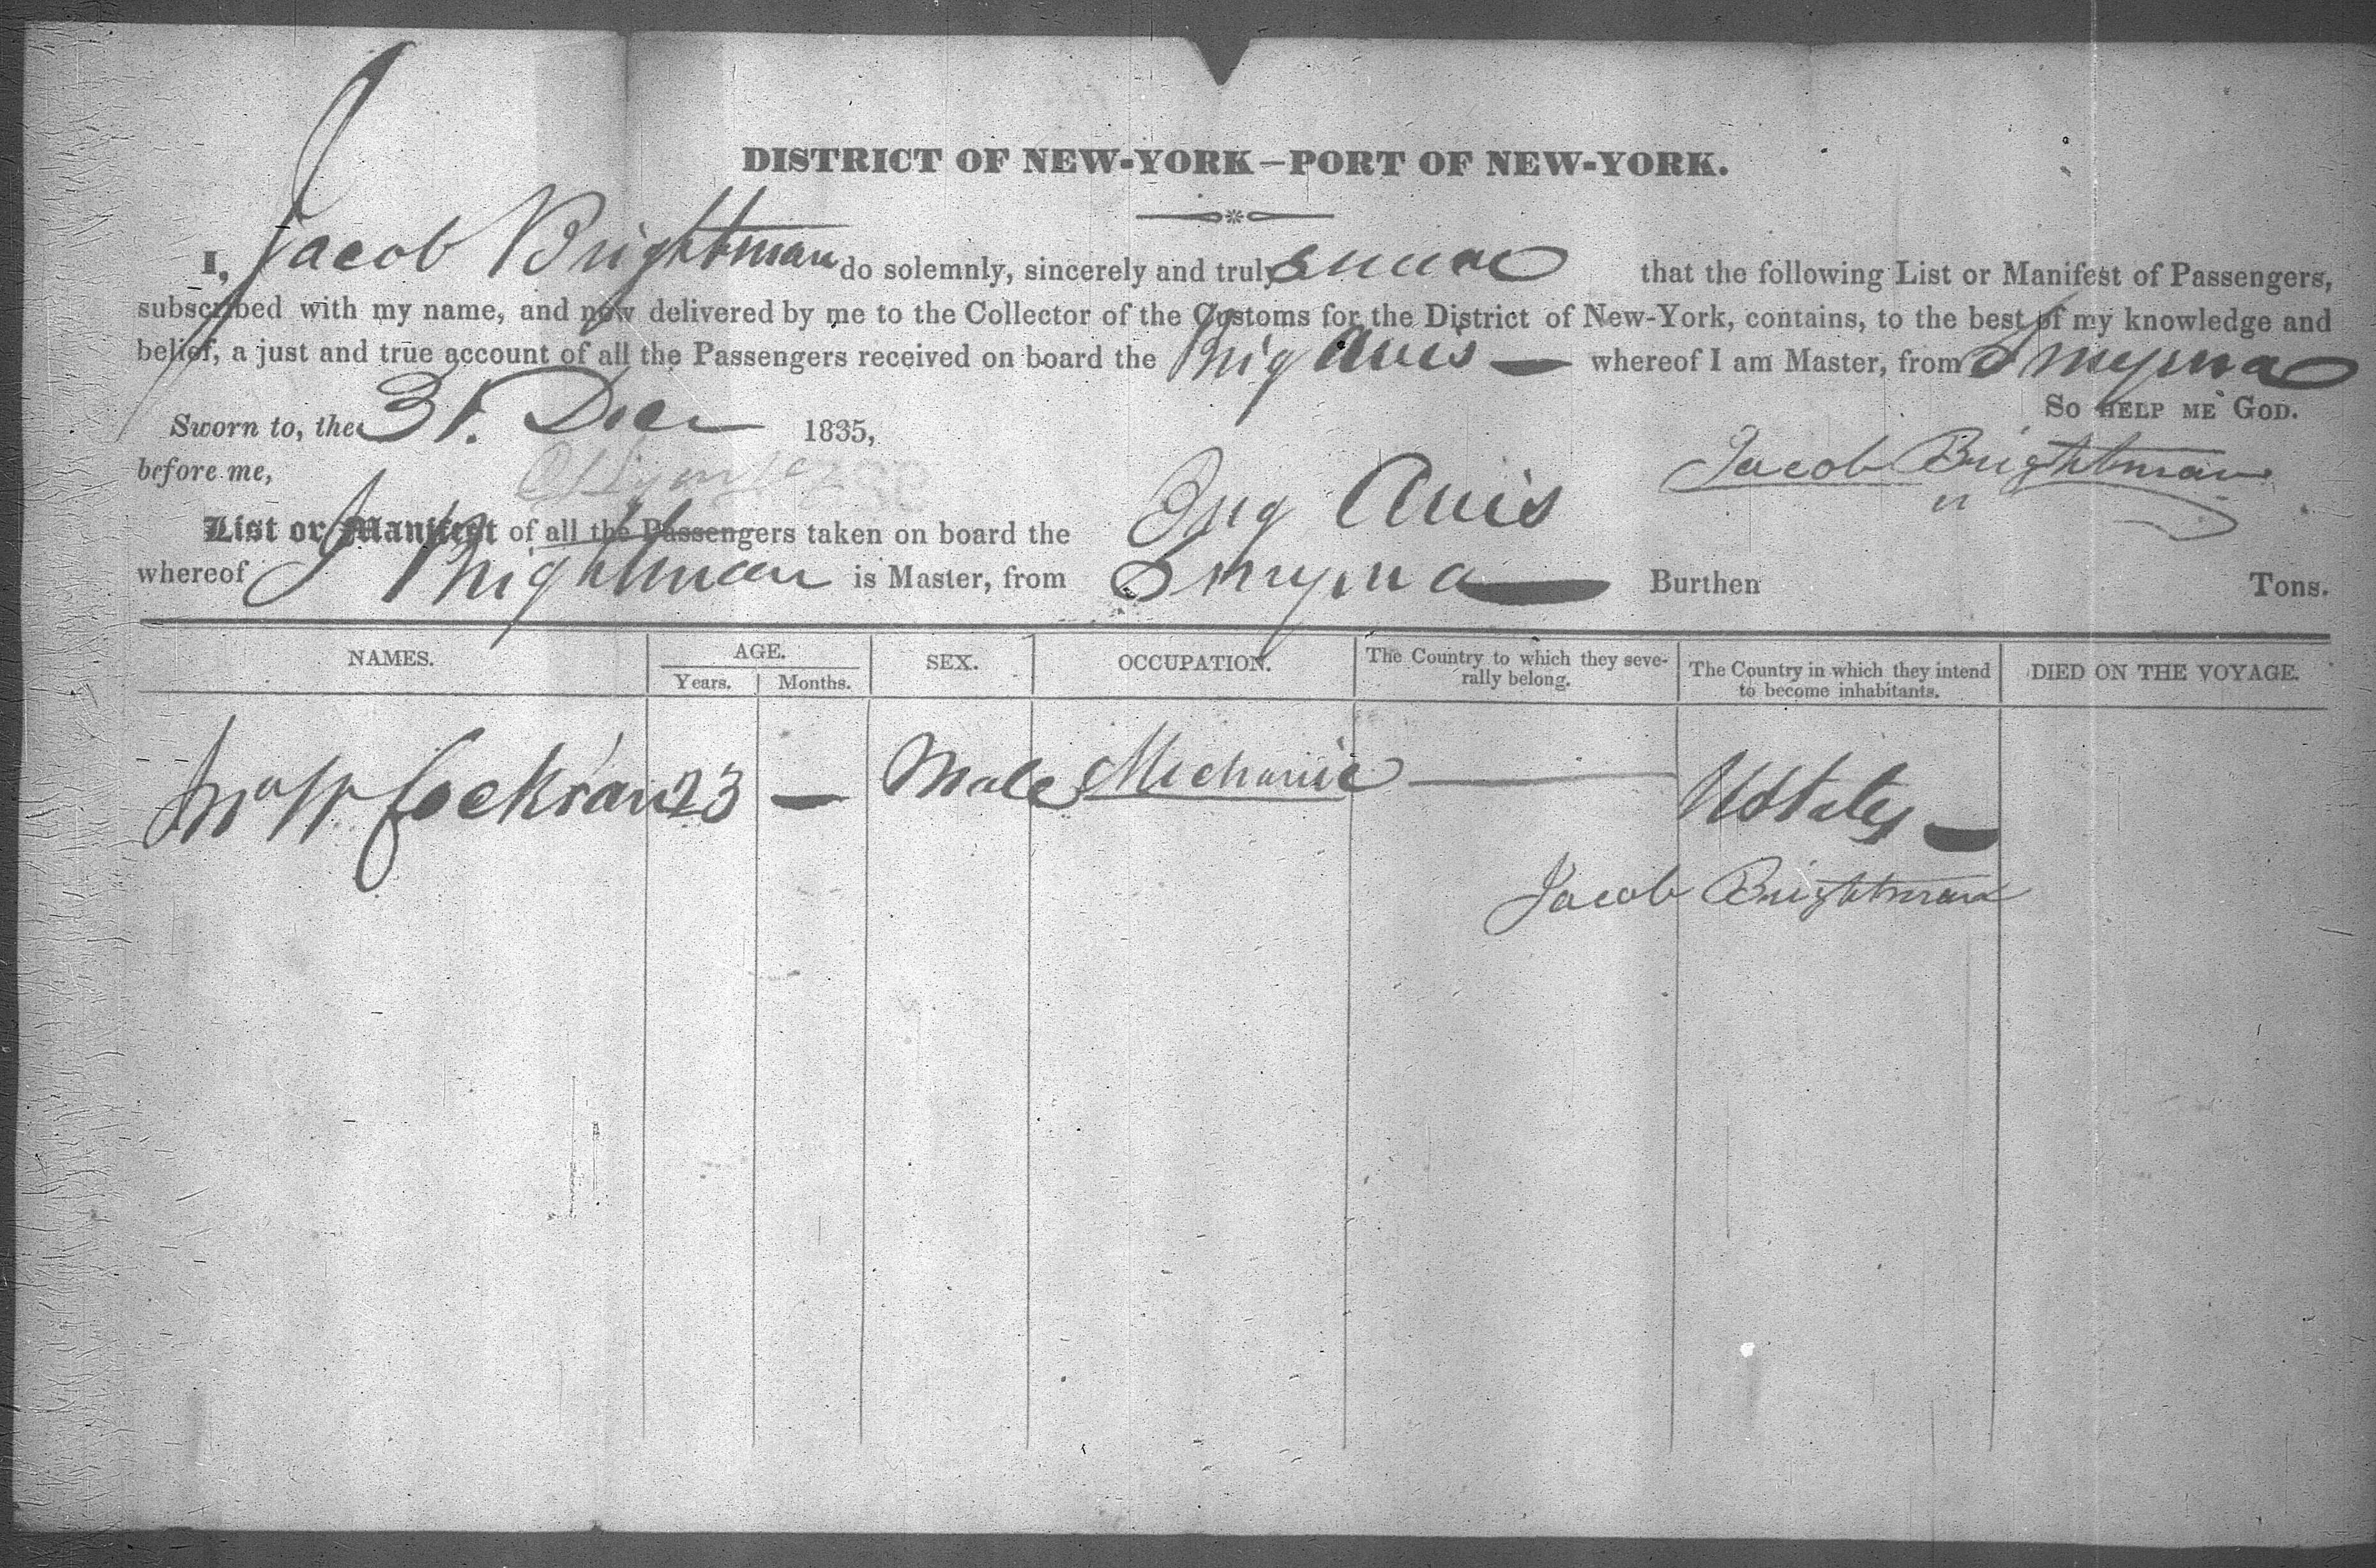 DISTRICT OF NEW-YORK—PORT OF NEW-YORK.
I, Jacob Brightman do solemnly, sincerely and truly swear that the following List or Manifest of Passengers,
subscribed with my name, and now delivered by me to the Collector of the Customs for the District of New-York, contains, to the best of my knowledge and
belief, a just and true account of all the Passengers received on board the Brig Avis — whereof I am Master, from Smyrna
So HELP ME GOD.
Sworn to, the 31. Decr 1835,
before me,
Jacob Brightman
List or Manifest of all the Passengers taken on board the Brig Avis
whereof J Brightman is Master, from Smyrna — Burthen Tons.
NAMES. AGE. Years. Months. SEX. OCCUPATION. The Country to which they severally belong. The Country in which they intend to become inhabitants. DIED ON THE VOYAGE.
W Cockran 23 — Male Mechanic — UStates —
Jacob Brightman